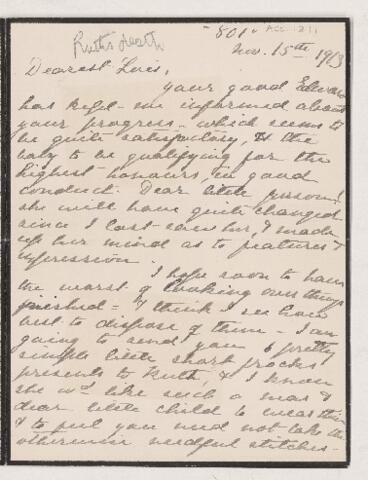 Ruth's death
801
Acc 1211
Nov. 15th 1913
Dearest Lois,
Your good Edward
has kept me informed about
your progress - which seems to
be quite satisfactory, & the
baby to be qualifying for the
highest honours, in good
conduct. Dear little person!
she will have quite changed
since I last saw her, & made
up her mind as to features &
expression.
I hope soon to have
the worst of looking over things
finished - I think I see how
best to dispose of them - I am
going to send you 6 pretty
simple little short frocks
presents to Ruth, & I know
she wd like such a near &
dear little child to wear them
& to put you need not take the
otherwise needful stitches -